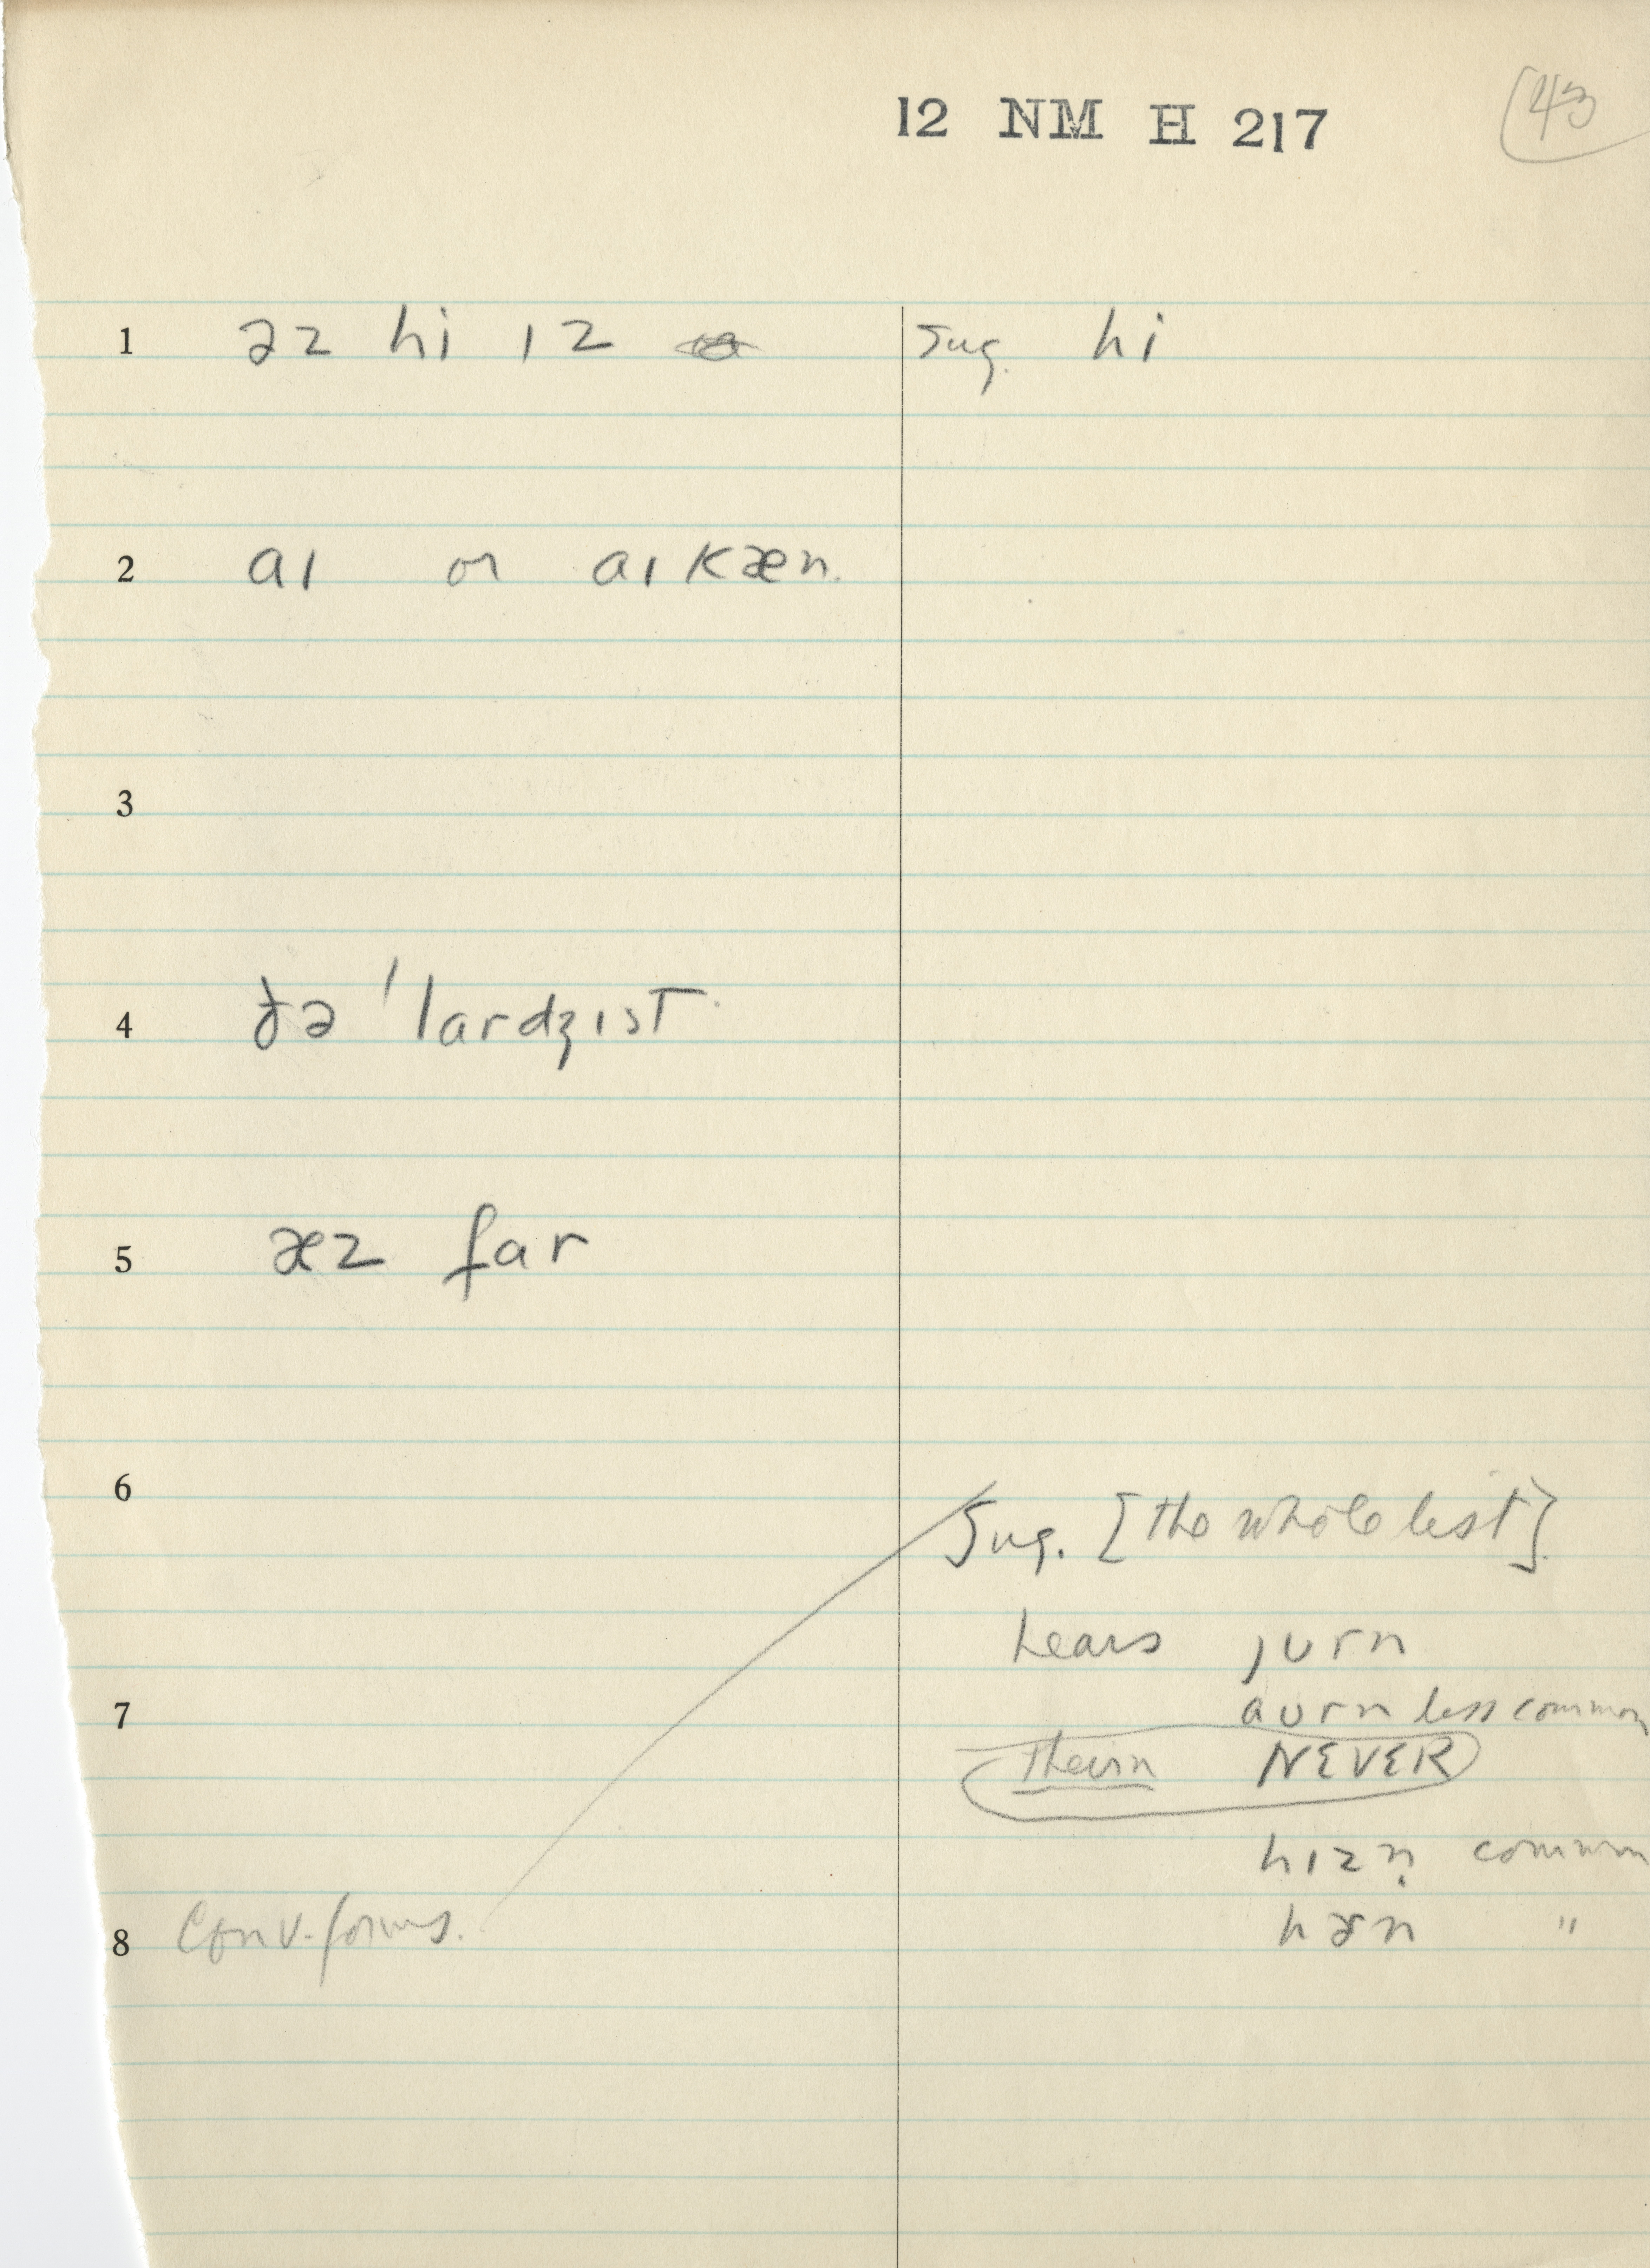 12 NM H 217 43
1 əz hi ɪz sug. hi
2 aɪ or aɪ kæn.
3
4 ðə 'lardʒɪst
5 æz far
6 sug. [the whole list]
hears jurn
7 aurn less common
theirn NEVER
hɪzn̩ common
8 Conv. forms. hɚn "